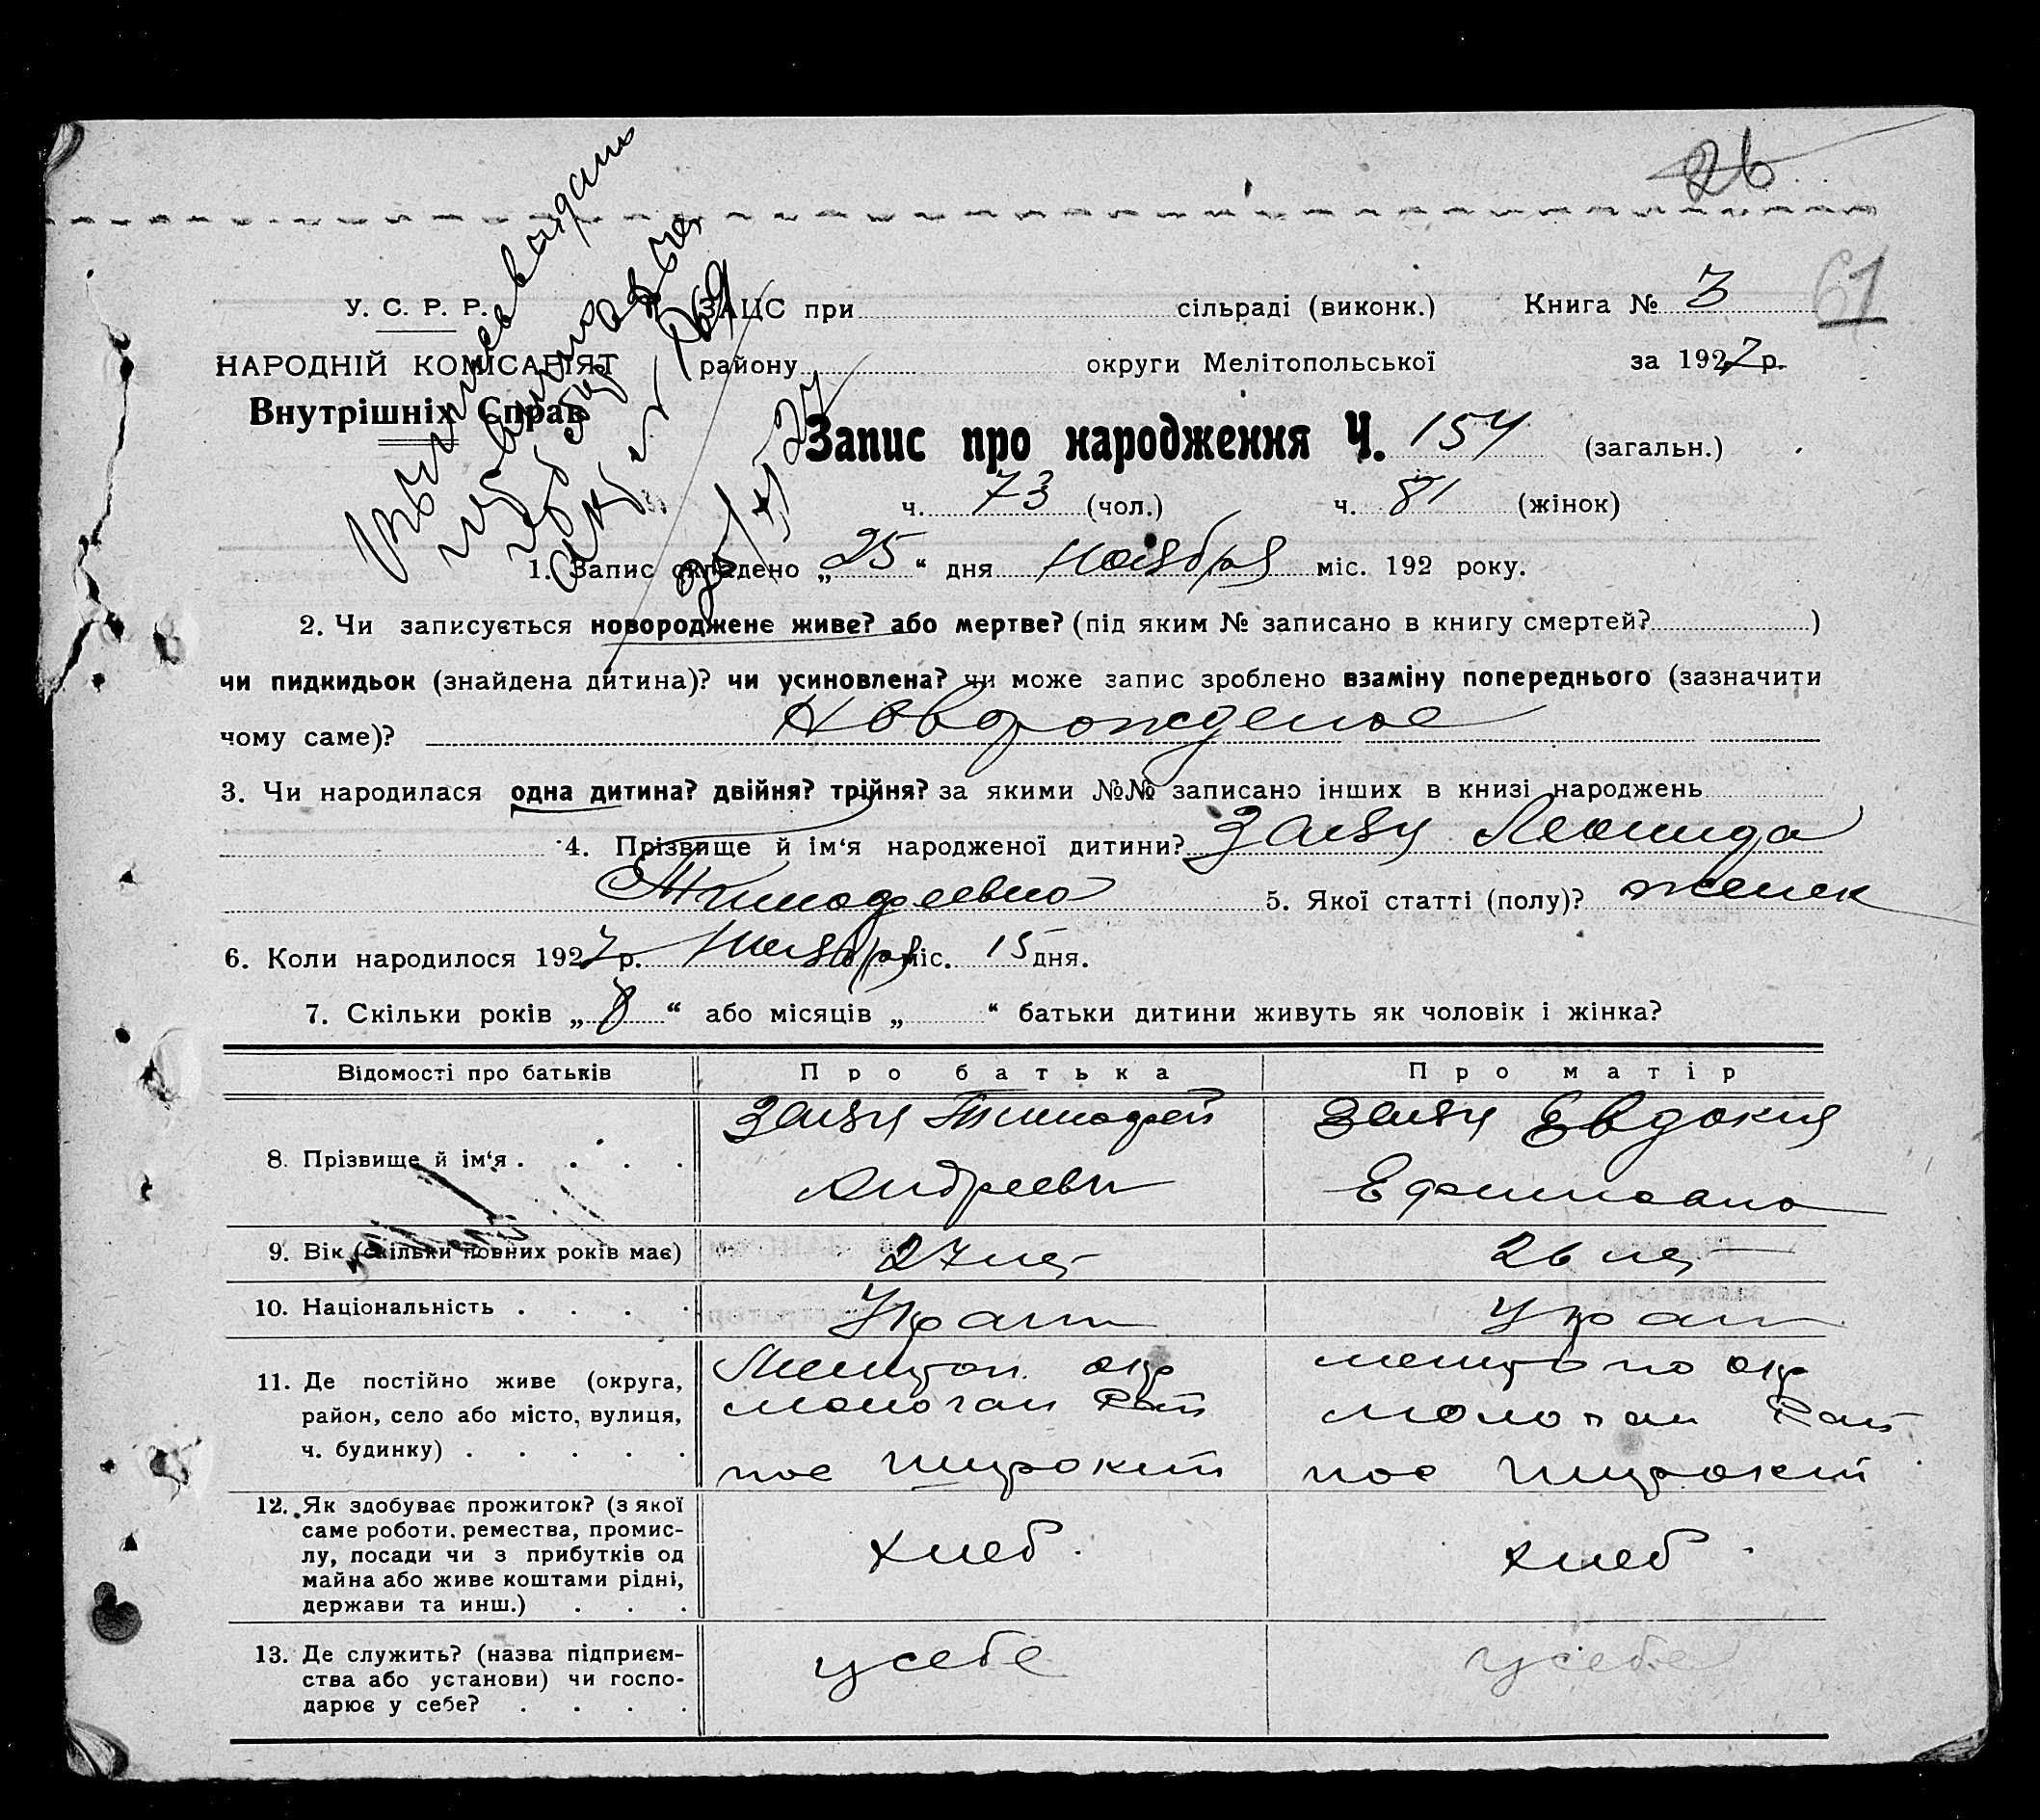 26
61
У. С. Р. Р. ЗАЦС при сільраді (виконк.) Книга № 3
НАРОДНІЙ КОМІСАРІЯТ району округи Мелітопольської за 1927 р.
Внутрішніх Справ
Запис про народження Ч. 154 (загальн.)
ч. 73 (чол.) ч. 81 (жінок)
1. Запис складено „25“ дня Ноября міс. 192 року.
2. Чи записується новороджене живе? або мертве? (під яким № записано в книгу смертей? )
чи пидкидьок (знайдена дитина)? чи усиновлена? чи може запис зроблено взаміну попереднього (зазначити
чому саме)? Новорожденое
3. Чи народилася одна дитина? двійня? трійня? за якими №№ записано інших в книзі народжень
4. Прізвище й ім‘я народженої дитини? Заяц Леонида
Тимофеевна 5. Якої статті (полу)? женск
6. Коли народилося 1927 р. Ноября міс. 15 дня.
7. Скільки років „8“ або місяців „ “ батьки дитини живуть як чоловік і жінка?
Відомості про батьків Про батька Про матір
8. Прізвище й ім‘я . . . . Заяц Тимофей Заяц Евдокия
Андреевич Ефимовна
9. Вік (скільки повних років має) 27 лет 26 лет
10. Національність . . . . Украин Украин
11. Де постійно живе (округа, Мелитоп. окр Мелитопо окр
район, село або місто, вулиця, Молочан Рай Молочан Рай
ч. будинку) . . . . . пос Широкий пос Широкий
12. Як здобуває прожиток? (з якої
саме роботи, ремества, промис-
лу, посади чи з прибутків од хлеб. хлеб.
майна або живе коштами рідні,
держави та инш.) . . .
13. Де служить? (назва підприєм- у себе у себе
ства або установи) чи госпо-
дарює у себе? . . . .